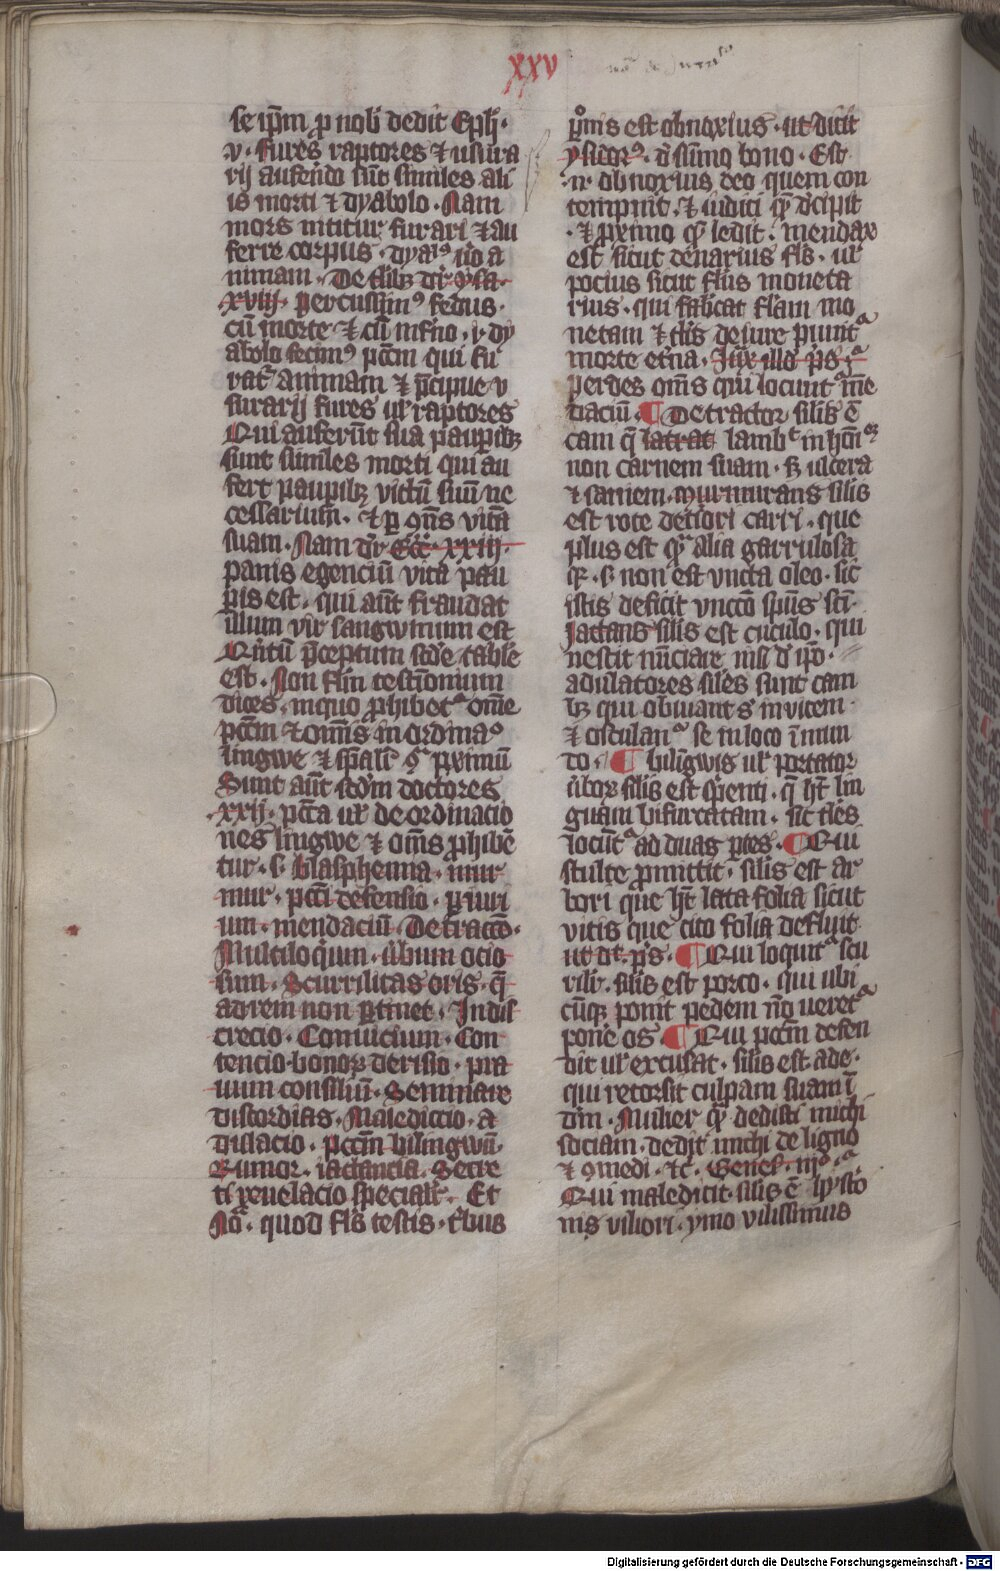 xxv
se ip̄m ꝓ nob̄ dedit Eph̄·
v· fures raptores ⁊ usura
rij auferēdo sūt similes ali
is morti ⁊ dyabolo· Nam
mors nititur furari ⁊ au
ferre corpus· dyaꝰ v̄o a
nimam· De filiꝫ dr̄ ysa·
xviij· percussimꝰ fedus·
cū morte ⁊ cū inf̄no· v· dy
abolo fecimꝰ pctm̄ qui fu
rat᷑ animam ⁊ p̄cipue v
surarij fures ul̄ raptores
Qui auferūt sua paupibꝫ
sunt similes morti qui au
fert paupibꝫ victū suū ne
cessarium· ⁊ ꝑ ꝯn̄s vitā
suam· Nam dr̄ Ecc̄· xxiij·
panis egenciū vita pau
ꝑis est· qui aūt fraudat
illum vir sangwinum est
Qntū p̄ceptum sc̄de tabl̄e
est· Non fl̄m testimonium
dices· inquo ꝓhibet᷑ omē
pctm̄ ⁊ omīs inordinaꝰ
lingwe ⁊ sp̄al̄r ꝯ᷑ pximū
Sunt aūt scd̄m doctores
xxij· pcc̄a ul̄ de ordinacio
nes lingwe ⁊ oms̄ ꝓhibē
tur· s· blasphemia· mur
mur· pcc̄i defensio· ꝑiuri
um· mendaciū· Detracc̄o·
Multiloqium· v̄bum ocio
sum· Scurrilitas oris· q̄
ad rem non ꝑtinet· Indis
crecio· Conuicium· Con
tencio· bonoꝝ derisio· pra
uum consiliū· Seminare
discordias· Malediccio· a
dulacio· pctm̄ bilingwū·
Rumor· iactancia· Secre
ti reuelacio special̄r· Et
No᷑· quod fls̄ testis· t̄bus
ꝑsonis est obnoxius· ut dicit
ysidorꝰ· d̄ sūmo bono· Est
·n· obnoxius deo quem con
tempnit· ⁊ iudici quē decipit
·⁊ pximo quē ledit· mendax
est sicut denarius fls̄· ul̄
pocius sicut fls̄us moneta
rius· qui fabricat fl̄am mo
netam ⁊ tl̄is de iure puniunt᷑
morte etn̄a· Iux̄ illd̄ ps̄
perdes om̄s qui locunt᷑ me
daciū· ¶ Detractor· silis̄ ē
cani q̄ latrat lamb̄t in hōiēꝫ
non carnem suam· sꝫ ulcera
⁊ saniem· murmurans silis̄
est rote deteriori carri· que
plus est qm̄ alia garrulosa
qꝛ· s· non est vncta oleo· sic
istis deficit vncc̄o spūs sc̄i·
Iactans silis̄ est cuculo· qui
nescit nūciare nisi d̄ ip̄o·
adulatores siles sunt cani
bꝫ qui obuiant s᷑ inuicem·
⁊ osculant᷑ se in loco īmun
do· ¶ bilīgwis ul̄ portator
v̄boꝝ silis̄ est sp̄enti· q̄ ht̄ lin
guam bifurcatam· sic tl̄es
locūt᷑ ad duas ꝑtes· ¶ Qui
stulte ꝓmittit· silis̄ est ar
bori que ht̄ lata folia sicut
vitis que cito folia defluit·
ut dt̄· ps̄· ¶ Qui loquit᷑ scu
ril̄r· silis̄ est porco· qui ubi
cūqꝫ ponit pedem nō veret᷑
ponē os· ¶ Qui pctm̄ defen
dit ul̄ excusat· silis̄ est ade·
qui retorsit culpam suam ī
dn̄m· Mulier quā dedisti michi
sociam· dedit michi de ligno
⁊ ꝯmedi· ⁊c̄· Genes̄· iijº·
Qui maledicit· silis̄ ē hysto
nis viliori· ymo vilissimus
Digitalisierung gefördert durch die Deutsche Forschungsgemeinschaft - DFG